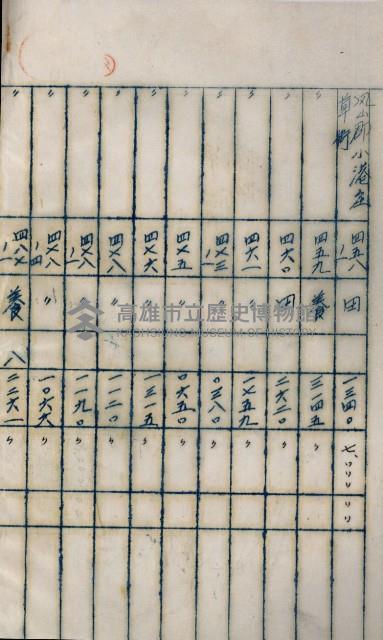 鳳山郡小港庄
草衙
四五八ノ一 田 一三四〇 七、〇〇〇〇〇
〃 四五九 養 三一四五 〃
〃 四六〇 田 二六二〇 〃
〃 四六一 〃 一七五九 〃
〃 〃 〇三八〇 〃
〃 四七五 〃 〇六五〇 〃
〃 四七六 〃 一三一五 〃
〃 四七八 〃 一一二〇 〃
〃 四七八ノ一 〃 一一九〇 〃
〃 四七八ノ四 〃 一〇六六 〃
〃 四八七ノ一 養 八二二六一 〃
高雄市立歷史博物館
KAOHSIUNG MUSEUM OF HISTORY